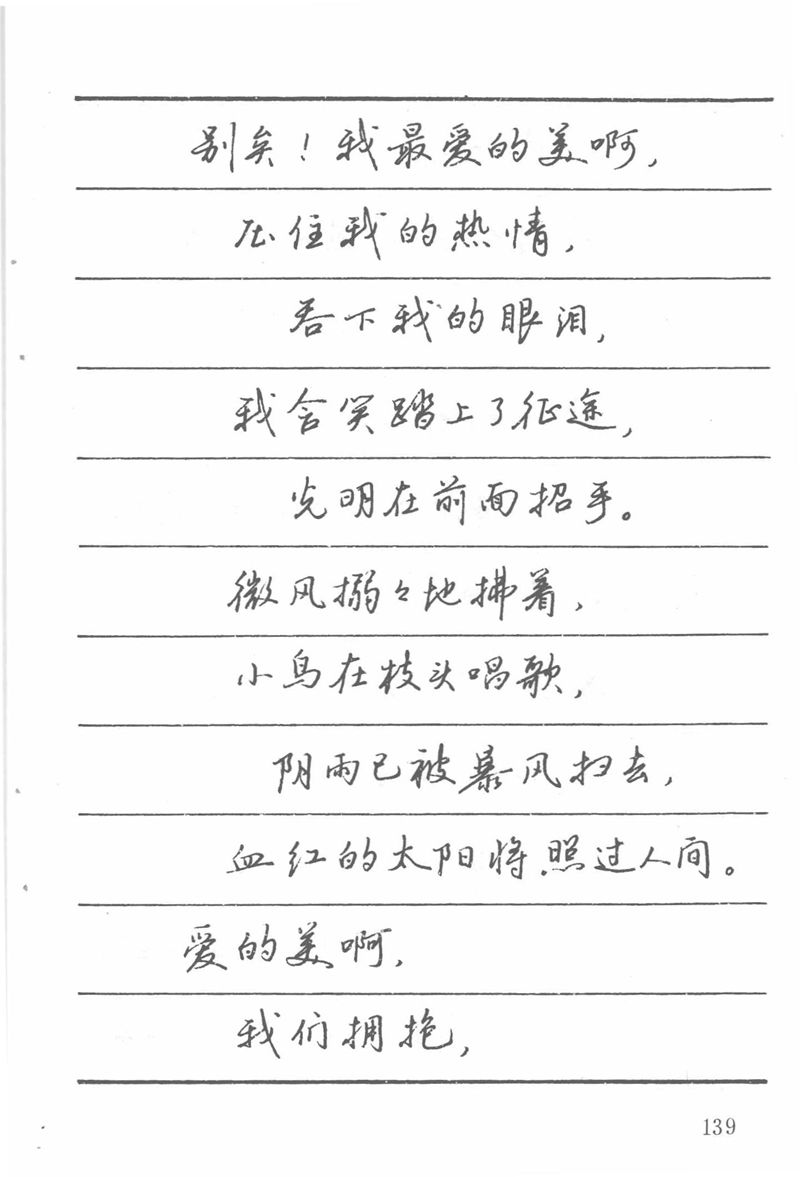 别矣！我最爱的美啊，
压住我的热情，
吞下我的眼泪，
我含笑踏上了征途，
光明在前面招手。
微风搦々地拂着，
小鸟在枝头唱歌，
阴雨已被暴风扫去，
血红的太阳将照过人间。
爱的美啊，
我们拥抱，
139